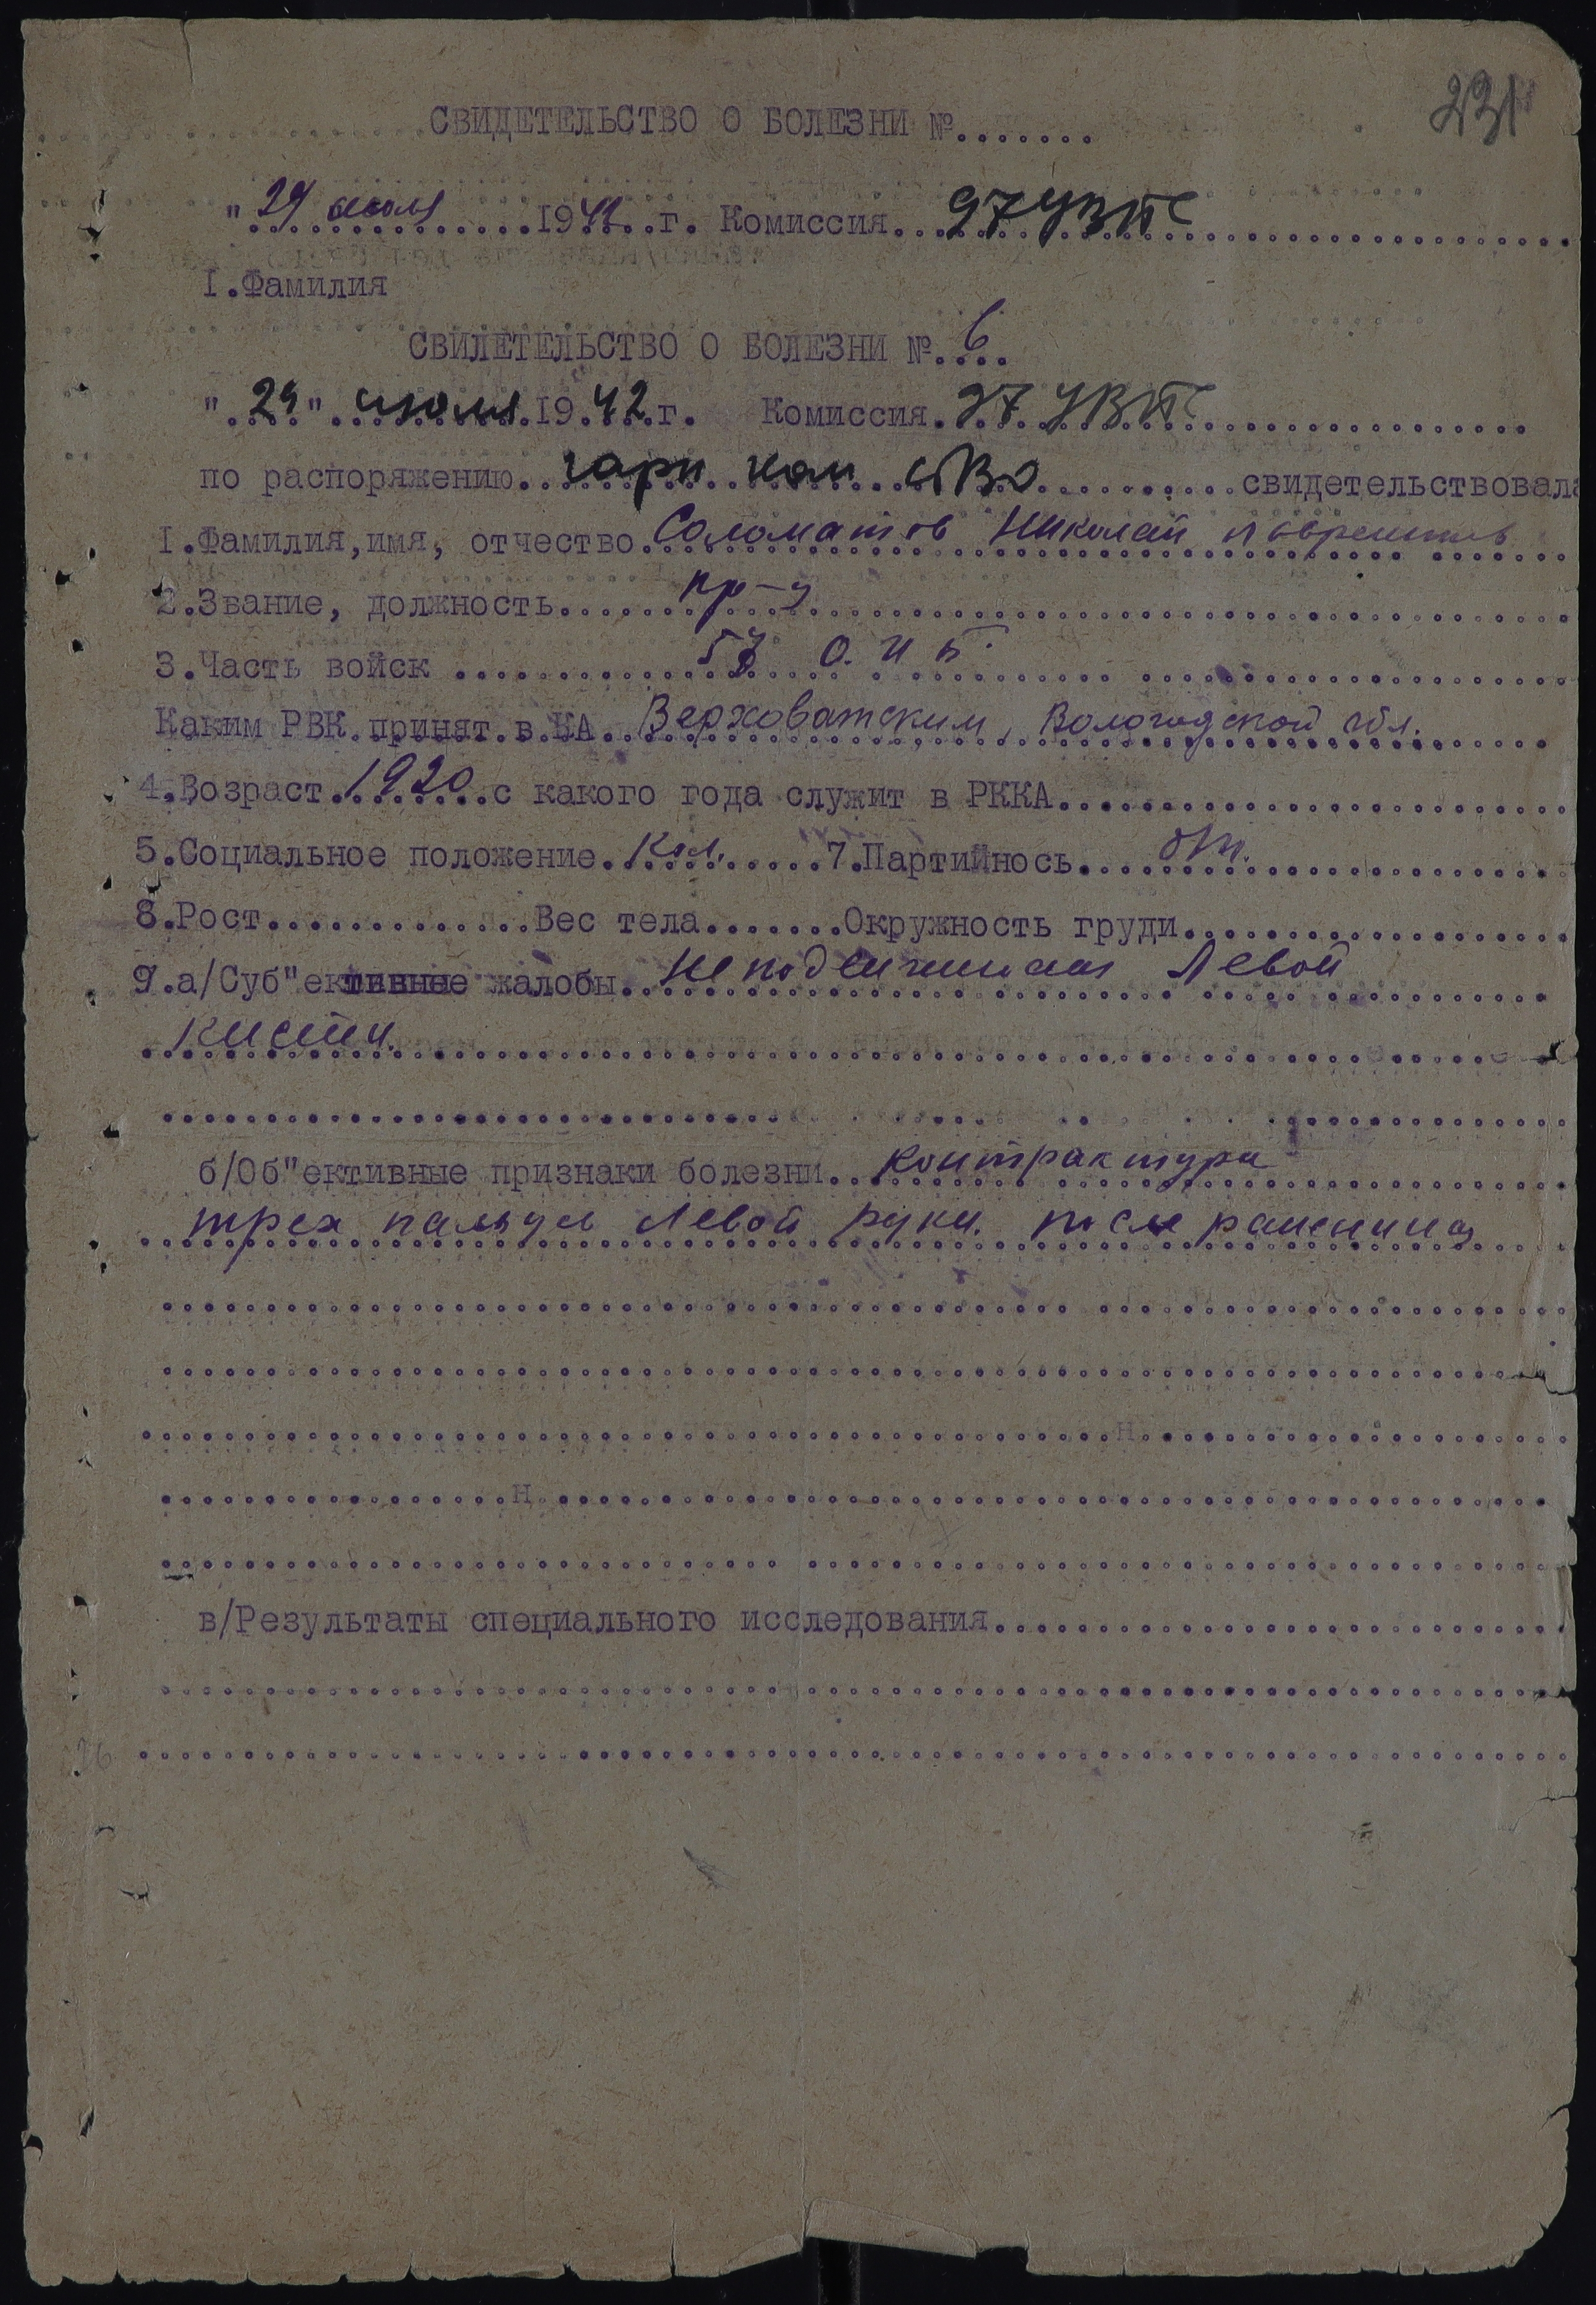 231
СВИДЕТЕЛЬСТВО О БОЛЕЗНИ №.......
"29 июля 1942 г. Комиссия 97 УВПС
I.Фамилия
СВИЛЕТЕЛЬСТВО О БОЛЕЗНИ № 6
"29" июля 1942 г. Комиссия 97 УВПС
по распоряжению гарн ком СВО свидетельствовала
I.Фамилия,имя, отчество Соломатов Николай
2.Звание, должность кр-ц
3.Часть войск 57 О.И.Б.
Каким РВК принят в КА Верховатским, Вологодской обл.
4.Возраст 1920 с какого года служит в РККА
5.Социальное положение кол. 7.Партийнось
8.Рост Вес тела Окружность груди
9.а/Суб"ективные жалобы Неподвижимая Левой
кисти.
б/Об"ективные признаки болезни контрактура
трех пальцев левой руки. после ранения
н
н
в/Результаты специального исследования